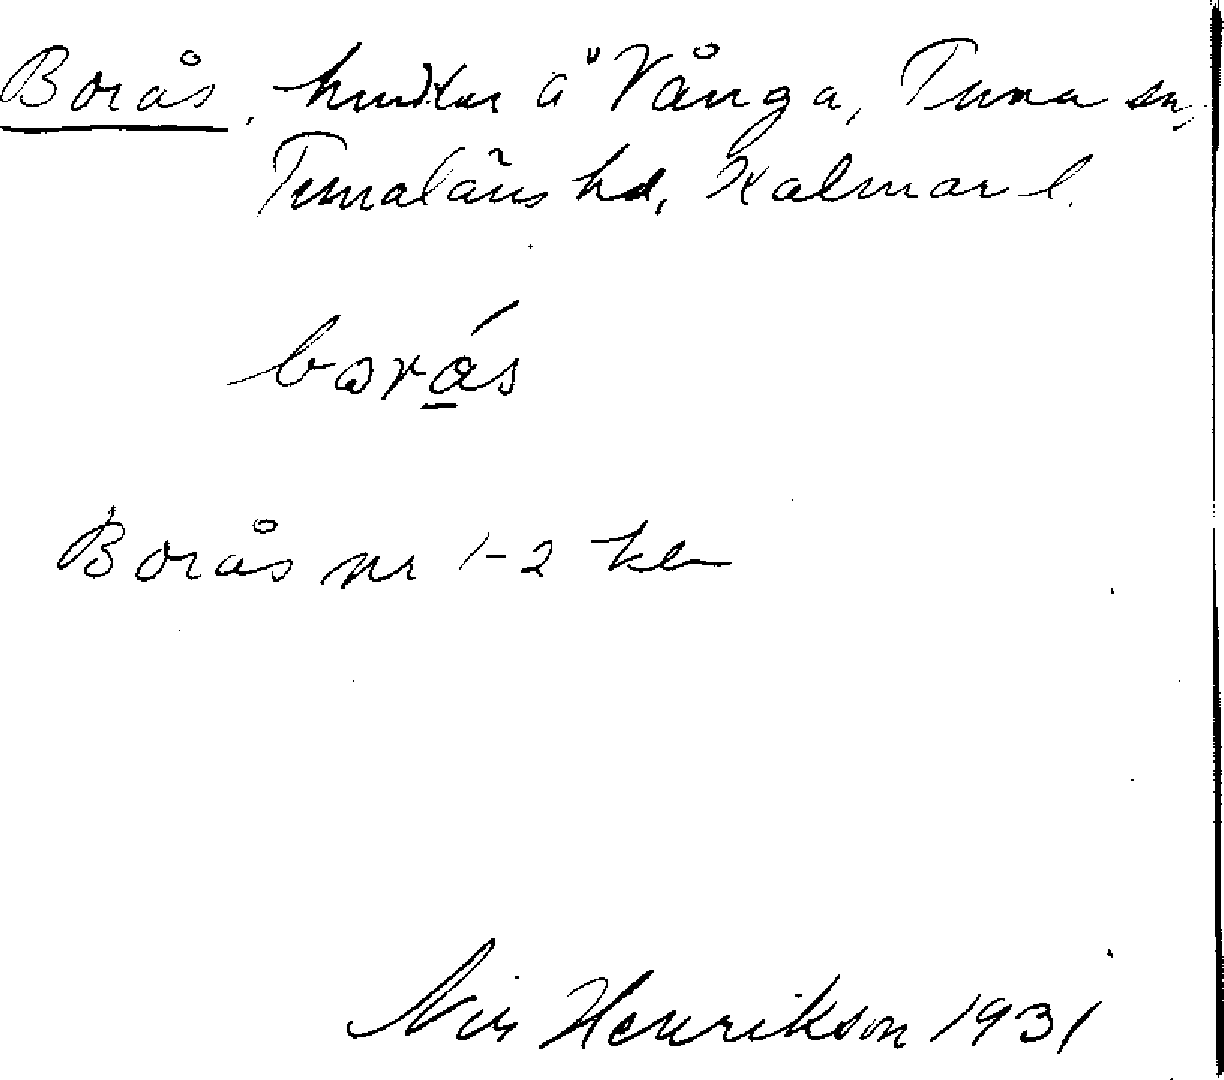 Borås, hmdlar å Vånga, Tuna sn,
Tunaläns hd, Kalmar l.
borås
Borås nr 1-2 kln
Nils Henrikson 1931